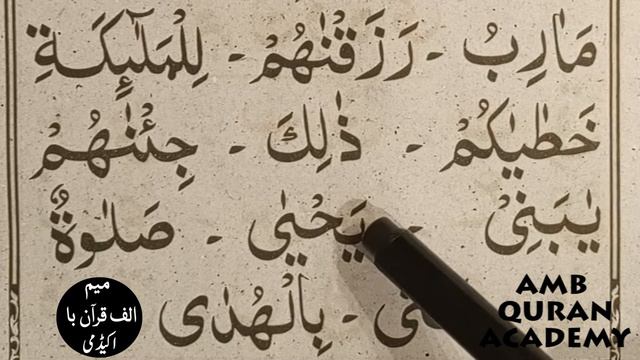 مَاٰرِبُ - رَزَقْنٰهُمْ - لِلْمَلٰٓئِكَةِ
خَطٰيٰكُمْ - ذٰلِكَ - جِئْنٰهُمْ
يٰبَنِيْ - يَحْيٰى - صَلٰوةٌ
بِالْهُدٰى
میم
الف قرآن با
اکیڈمی
AMB
QURAN
ACADEMY